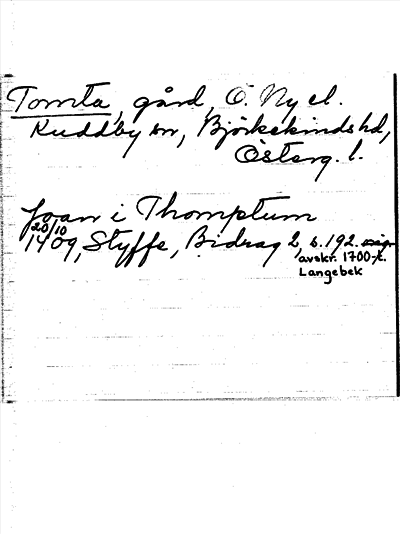 Tomta, gård, Ö. Ny el.
Kuddby sn, Björkekinds hd,
Österg. l.
Joan i Thomptum
20/10
1409, Styffe, Bidrag 2, s. 192.
avskr. 1700-t.
Langebek